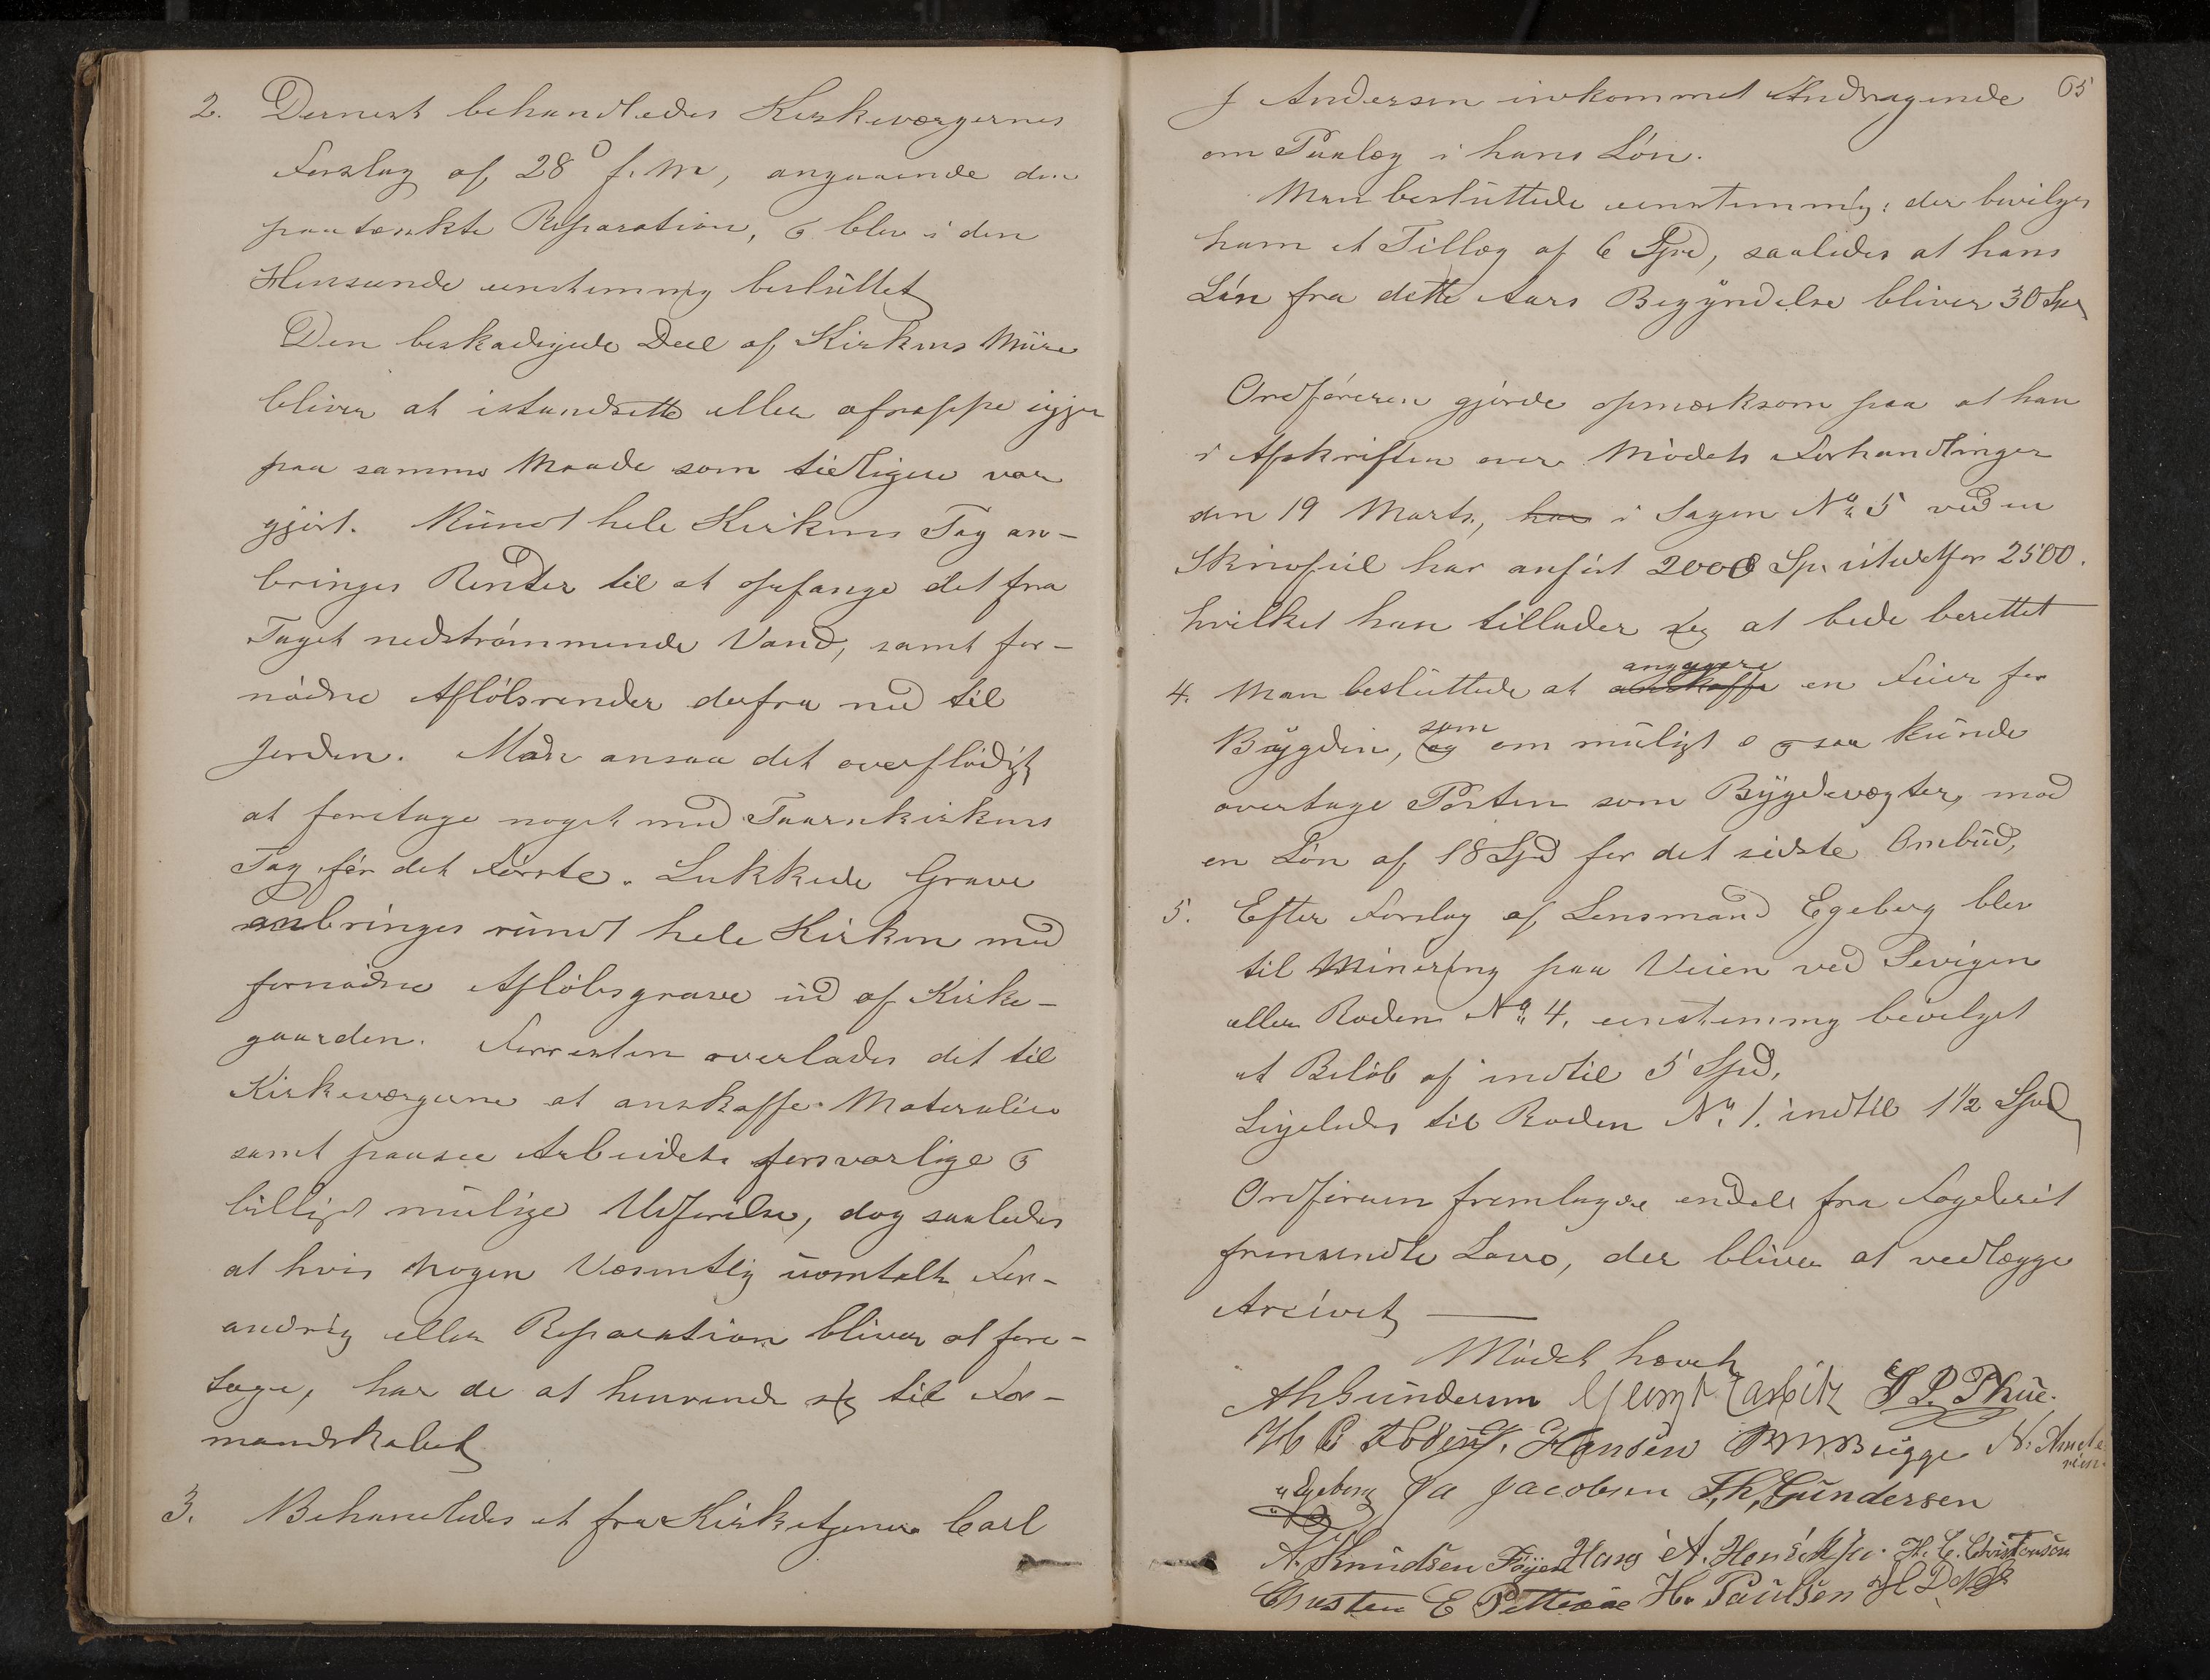 2. Dernest behandledes Kirkeværgernes
Forslag af 28° f. M, angaaende den
paatænkte Reparation, & blev i den
Henseende eenstemmig besluttet
Den beskadigede Deel af Kirkens Mure
bliver at istandsætte eller afrappe igjen
paa samme Maade som tidligere var
gjort. Rundt hele Kirkens Tag an-
bringes Render til at opfange det fra
Taget nedstrømmende Vand, samt for-
nødne Afløbsrender derfra ned til
Jorden. Man ansaa det overflødigt
at foretage noget med Taarnkirkens
Tag før det første. Lukkede Grave
anbringes rundt hele Kirken med
fornødne Afløbsgrave ud af Kirke-
gaarden. Forresten overlades det til
Kirkeværgerne at anskaffe Materialier
samt paasee Arbeidets forsvarlige &
billigst mulige Udførelse, dog saaledes
at hvis nogen Væsentlig uomtalt For-
andrig eller Reparation bliver at fore-
tage, har de at henvende sig til For-
mandskabet
3. Behandledes et fra Kirketjener Carl
65
J Andersen indkommet Andragende
om Paalæg i hans Løn.
Man besluttede eenstemmig: der bevilges
ham et Tillæg af 6 Spd, saaledes at hans
Løn fra dette Aars Begyndelse bliver 30 Spd
Ordføreren gjorde opmærksom paa at han
i Afskriften over Mødets Forhandlinger
den 19 Marts, har i Sagen No 5 ved en
Skrivfeil har anført 2000 Sp. istedetfor 2500.
hvilket han tillader sig at bede berettet
4. Man besluttede at anskaffe angagere en Feier for
Bygden, og som om muligt ogsaa kunde
overtage Posten som Bygdevægter, mod
en Løn af 18 Spd for det sidste Ombud,
5. Efter Forslag af Lensmand Egeberg blev
til Minering paa Veien ved Sevigen
eller Roden No 4. eenstemmig bevilget
et Beløb af indtil 5 Spd,
Ligeledes til Roden No 1. indtil 1 1/2 Spd
Ordføreren fremlagde endel fra Fogderiet
fremsendte Love, der bliver at vedlægge
Arcivet
Mødet hævet
AhGundersen Georg Carbitz S P. Thue.
Hansen Bugge N:
Egeberg Ja Jacobsen Th, Gundersen
A. Knudsen Føyen Hans A. Henr H. C. Christensen
Christen E Pettersen H. Paulsen